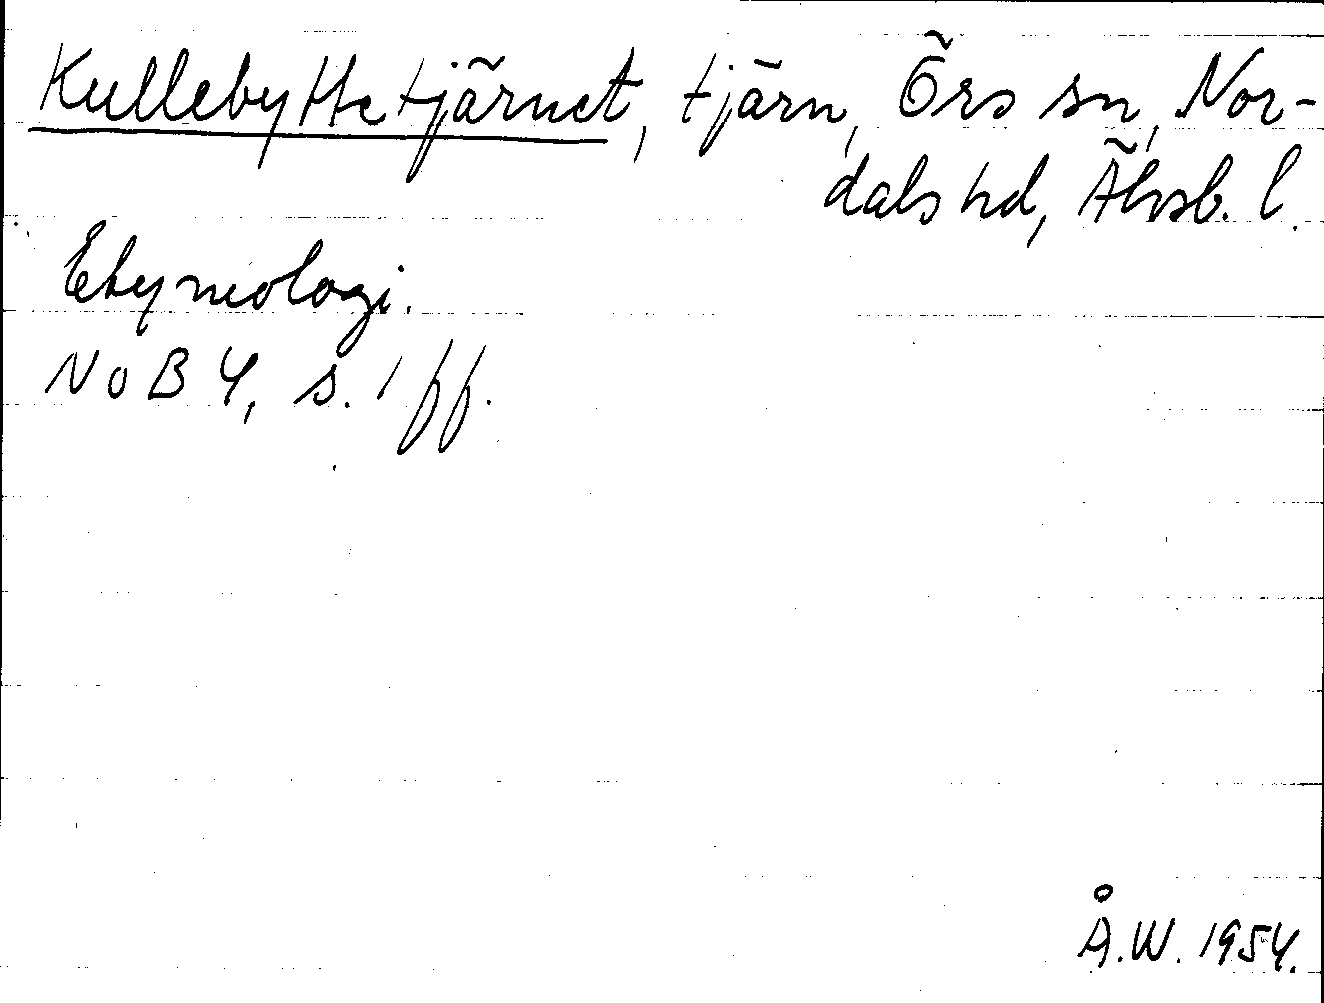 Kullebyttetjärnet, tjärn, Örs sn, Nor-
dals hd, Älvsb. l.
Etymologi.
NoB 4, s. 1 ff.
Å.W. 1954.